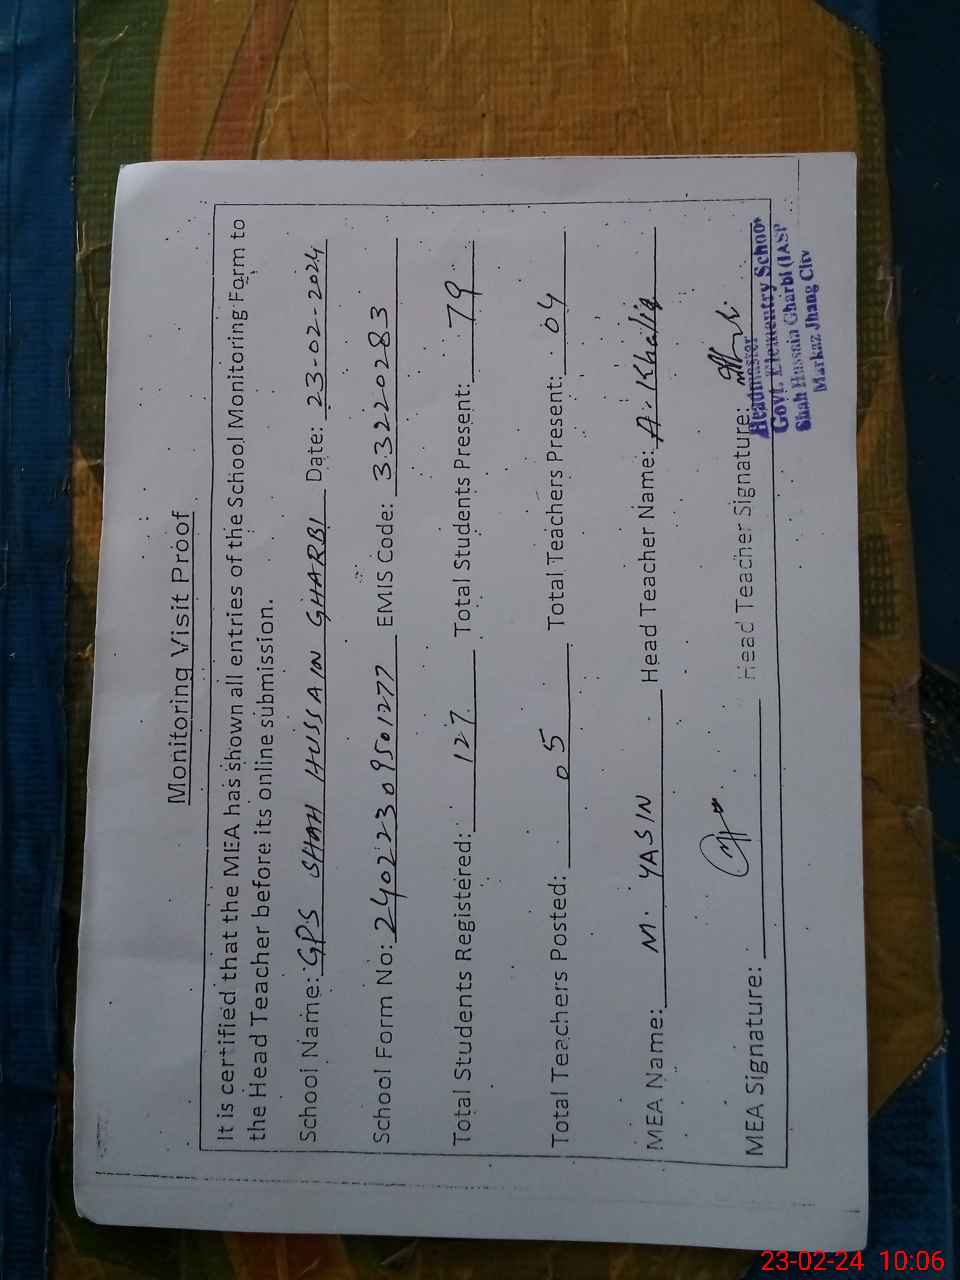 Monitoring Visit Proof
It is certified that the MEA has shown all entries of the School Monitoring Form to
the Head Teacher before its online submission.
School Name: GPS SHAH HUSSAIN GHARBI Date: 23-02-2024
School Form No: 24022309501277 EMIS Code: 33220283
Total Students Registered: 127 Total Students Present: 79
Total Teachers Posted: 05 Total Teachers Present: 04
MEA Name: M. YASIN Head Teacher Name: A. Khaliq
MEA Signature: Head Teacher Signature:
Headmaster
Govt. Elementry School
Shah Hussain Gharbi (IASP
Markaz Jhang City
23-02-24 10:06